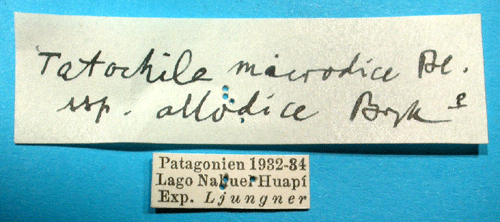 Tatochila macrodice Bl.
ssp. allodice Bryk ♀
Patagonien 1932-34
Lago Nahuel Huapí
Exp. Ljungner